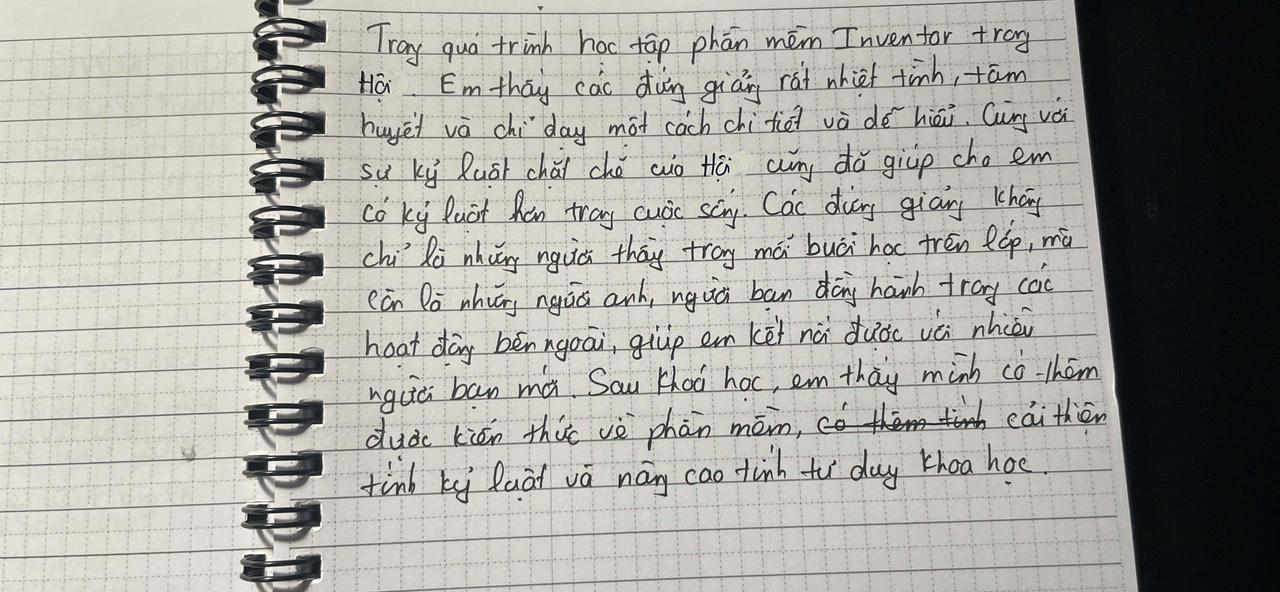 Trong quá trình học tập phần mềm Inventor trong
Hội. Em thấy các đứng giảng rất nhiệt tình, tâm
huyết và chỉ dạy một cách chi tiết và dễ hiểu. Cùng với
sự kỷ luật chặt chẽ của Hội cũng đã giúp cho em
có kỷ luật hơn trong cuộc sống. Các đứng giảng không
chỉ là những người thầy trong mỗi buổi học trên lớp, mà
còn là những người anh, người bạn đồng hành trong các
hoạt động bên ngoài, giúp em kết nối được với nhiều
người bạn mới. Sau khoá học, em thấy mình có thêm
được kiến thức về phần mềm, có thêm tính cải thiện
tính kỷ luật và nâng cao tính tư duy khoa học.